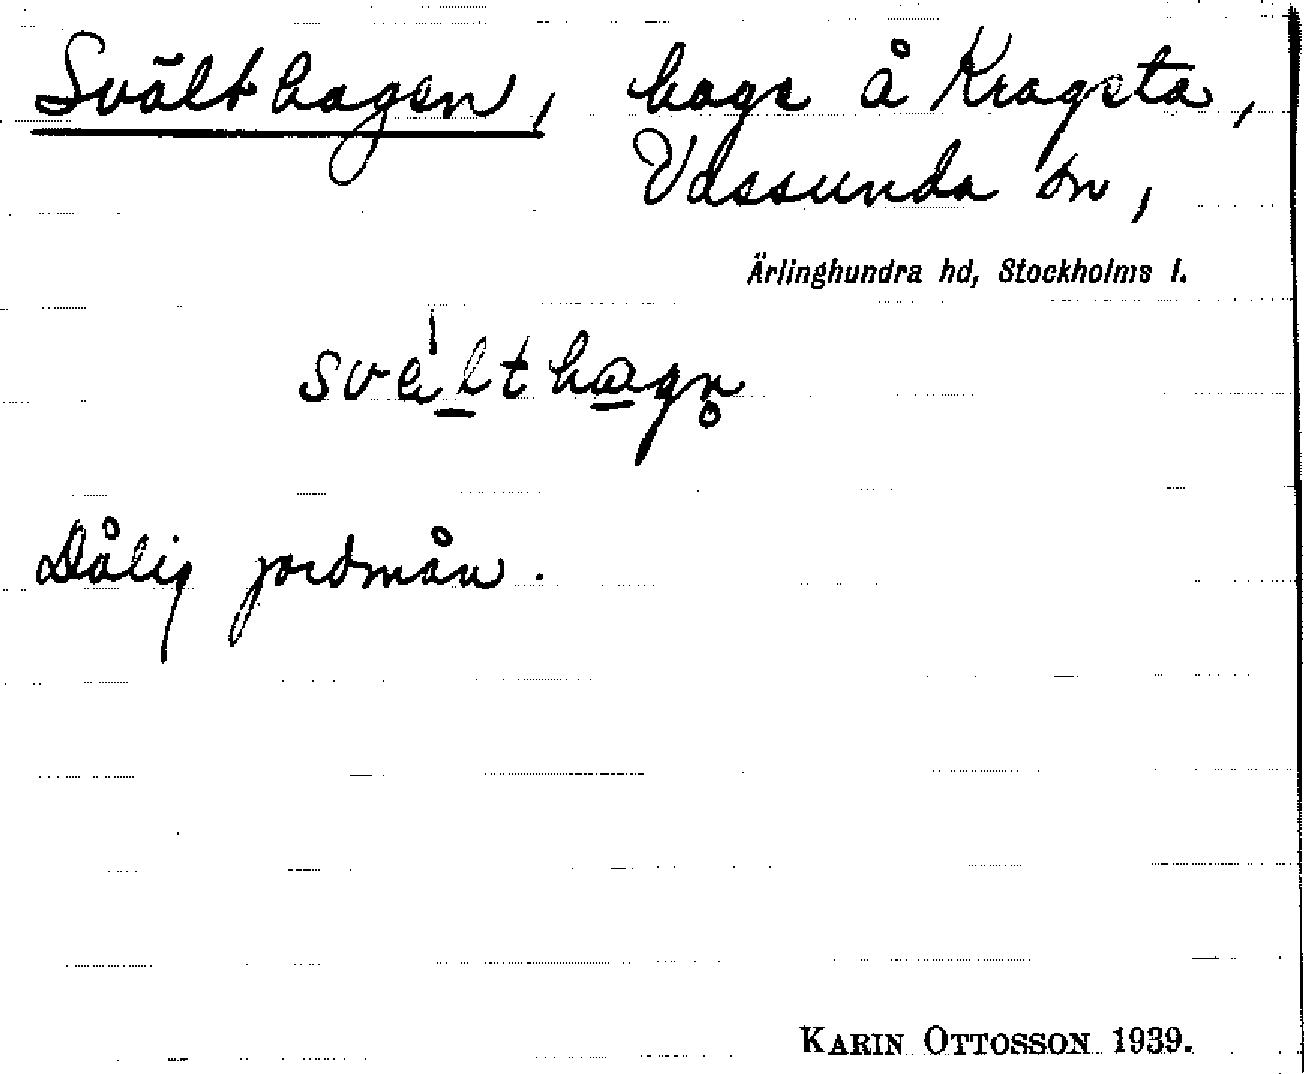 Svälthagen, hage å Kragsta,
Vassunda sn,
Ärlinghundra hd, Stockholms l.
svèlthagn̥
Dålig jordmån.
KARIN OTTOSSON 1939.